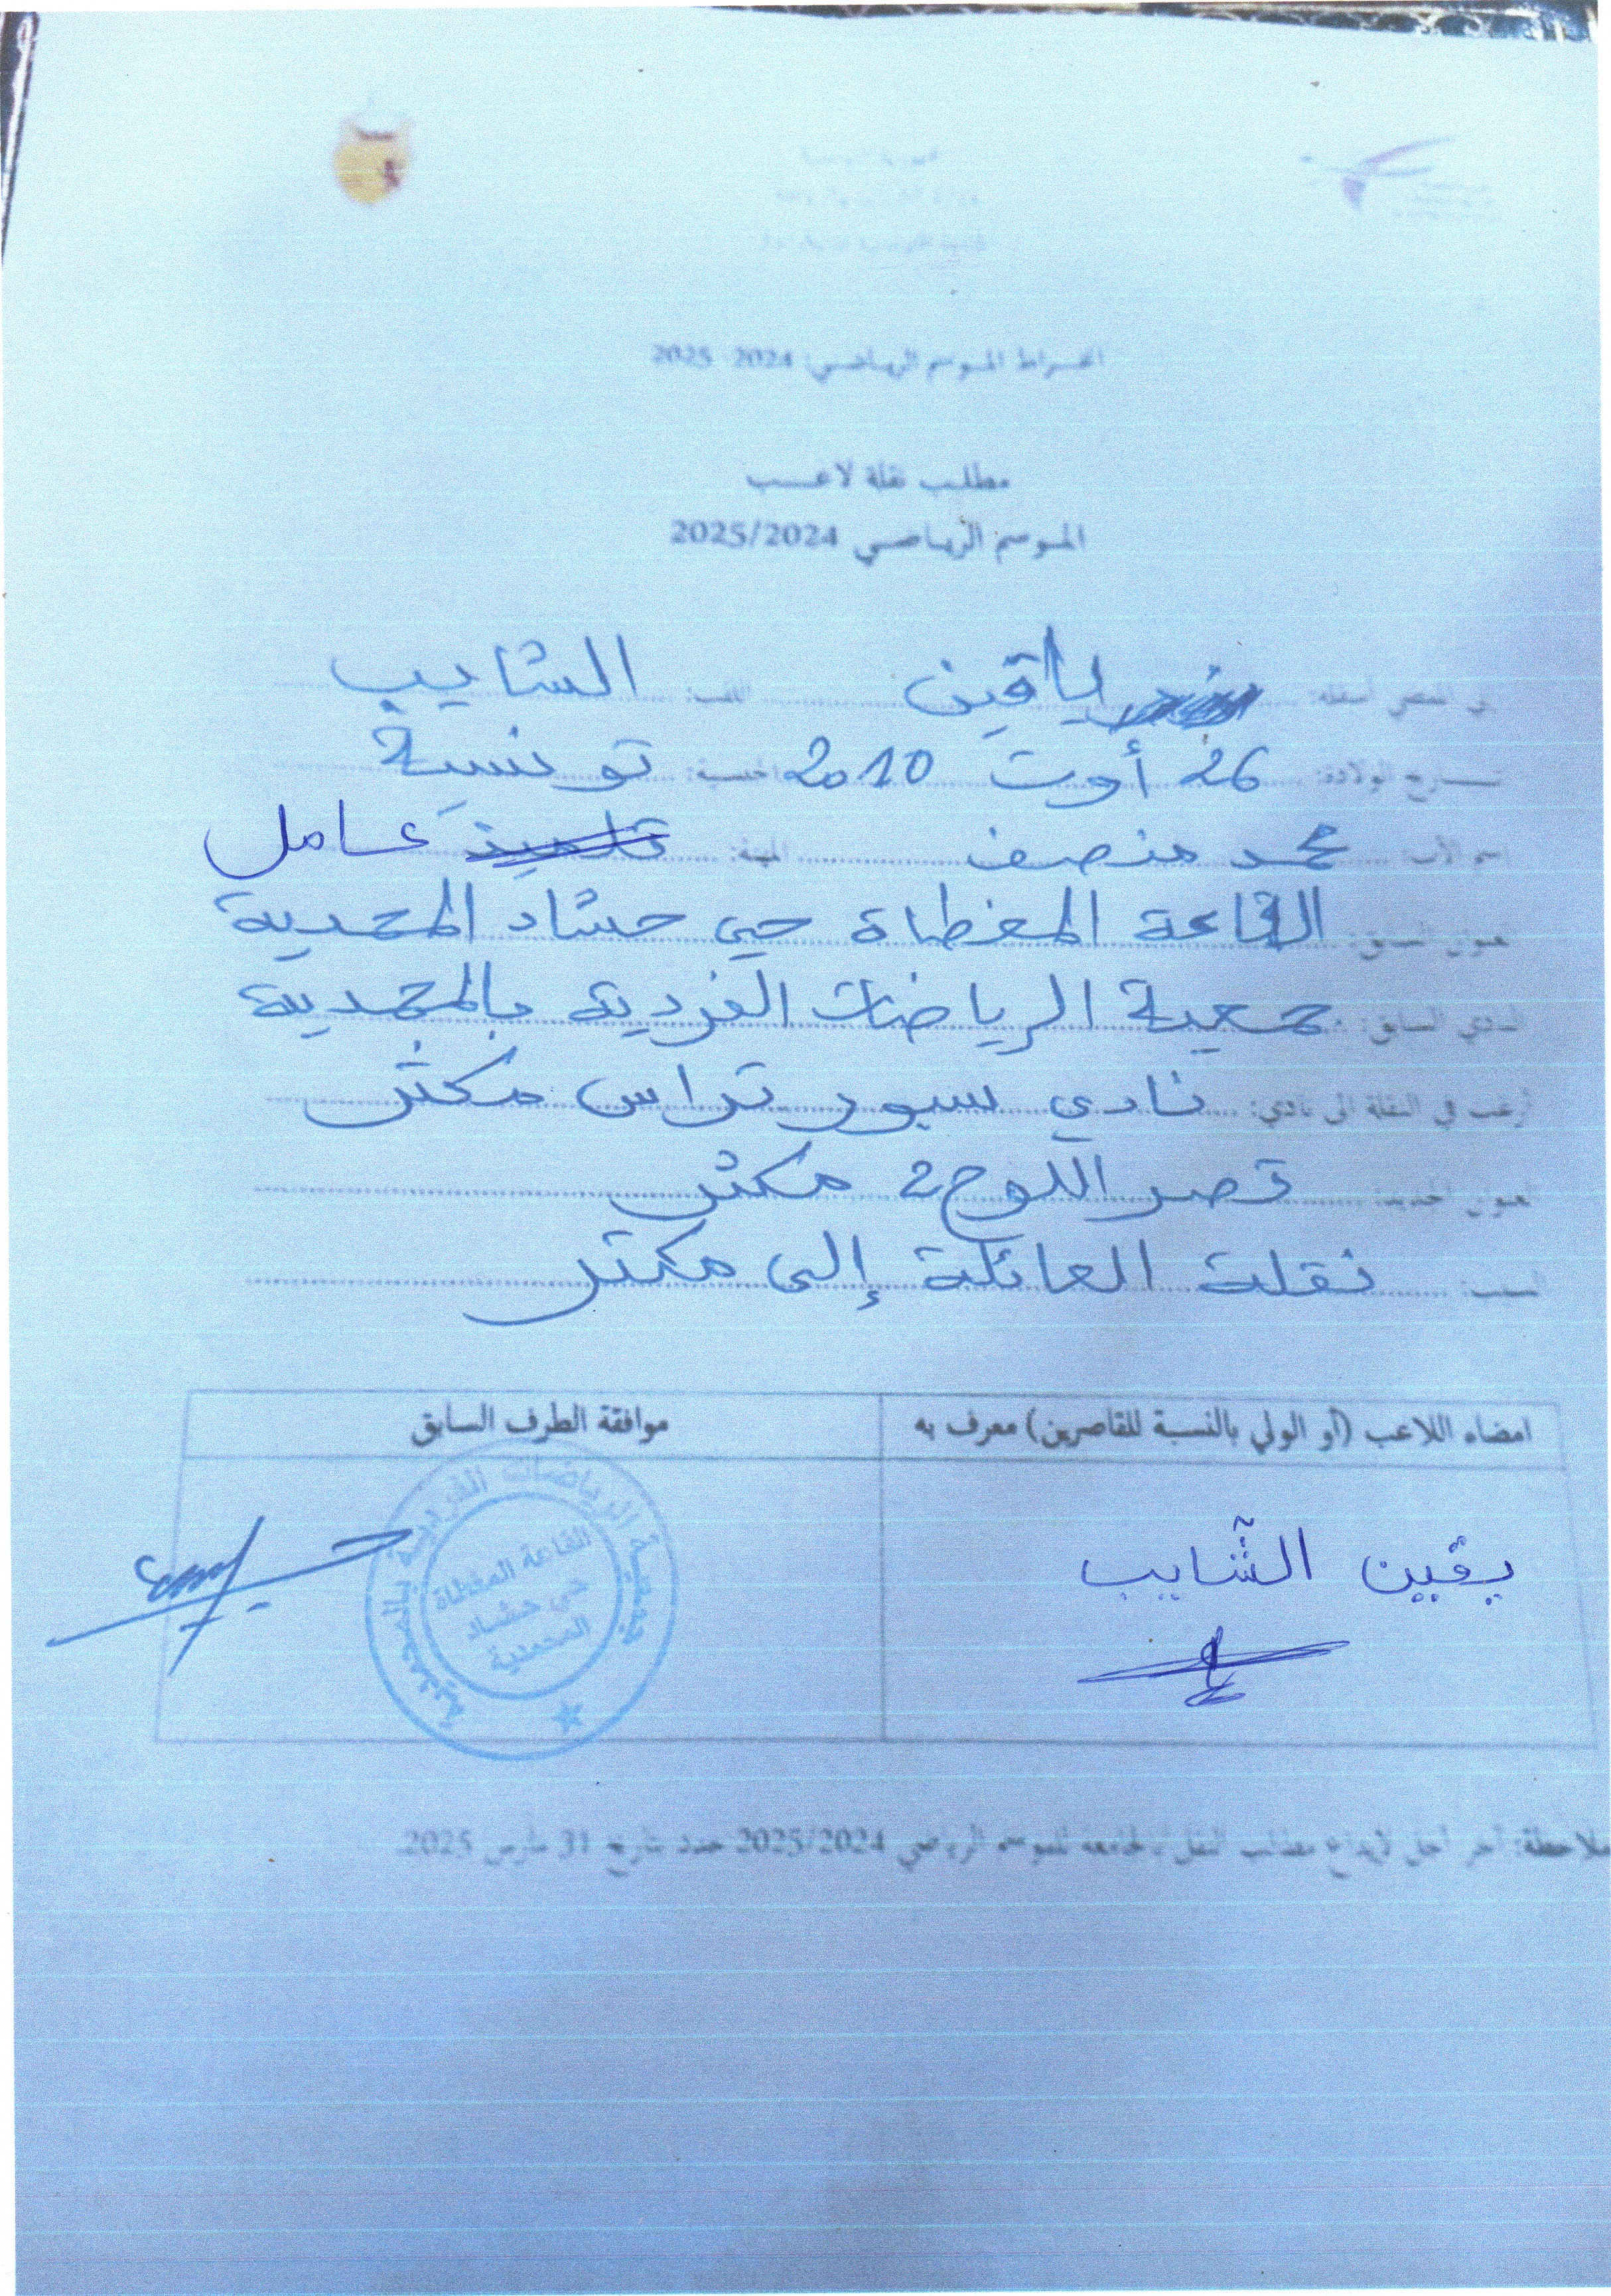 انخـراط الموسم الرياضـي: 2024 2025
مطلـب نقلة لاعـــب
الموسم الرياضـي 2025/2024
إني الممضي أسفله: ياقين اللقب: الشايب
تـــاريخ الولادة: 26 أوت 2010 الجنسية: تونسية
اسم الأب: محمد منصف المهنة: تلميذ عامل
عنوان السابق: القاعة المغطاة حي حشاد المحمدية
النادي السابق: جمعية الرياضات الفردية بالمحمدية
أرغب في النقلة الى نادي: نادي سبور تراس مكثر
العنوان الجديد: قصر اللوح 2 مكثر
السبب: نقلة العائلة إلى مكثر
امضاء اللاعب (أو الولي بالنسبة للقاصرين) معرف به
موافقة الطرف السابق
يقين الشايب
جمعية الرياضات الفردية بالمحمدية
القاعة المغطاة
حي حشاد
المحمدية
ملاحظة: آخر أجل لإيداع مطالب النقل بالجامعة للموسم الرياضي 2025/2024 حدد بتاريخ 31 مارس 2025.